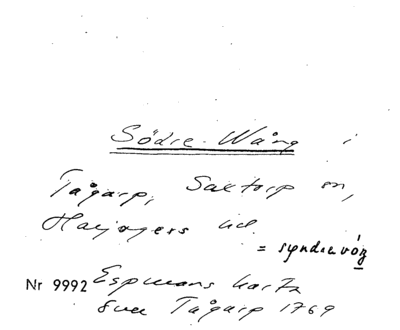 Södre Wång i
Tågarp, Saxtorp sn,
Harjagers hd.
= syndre vóŋ
Nr 9992 Espmans karta
över Tågarp 1769